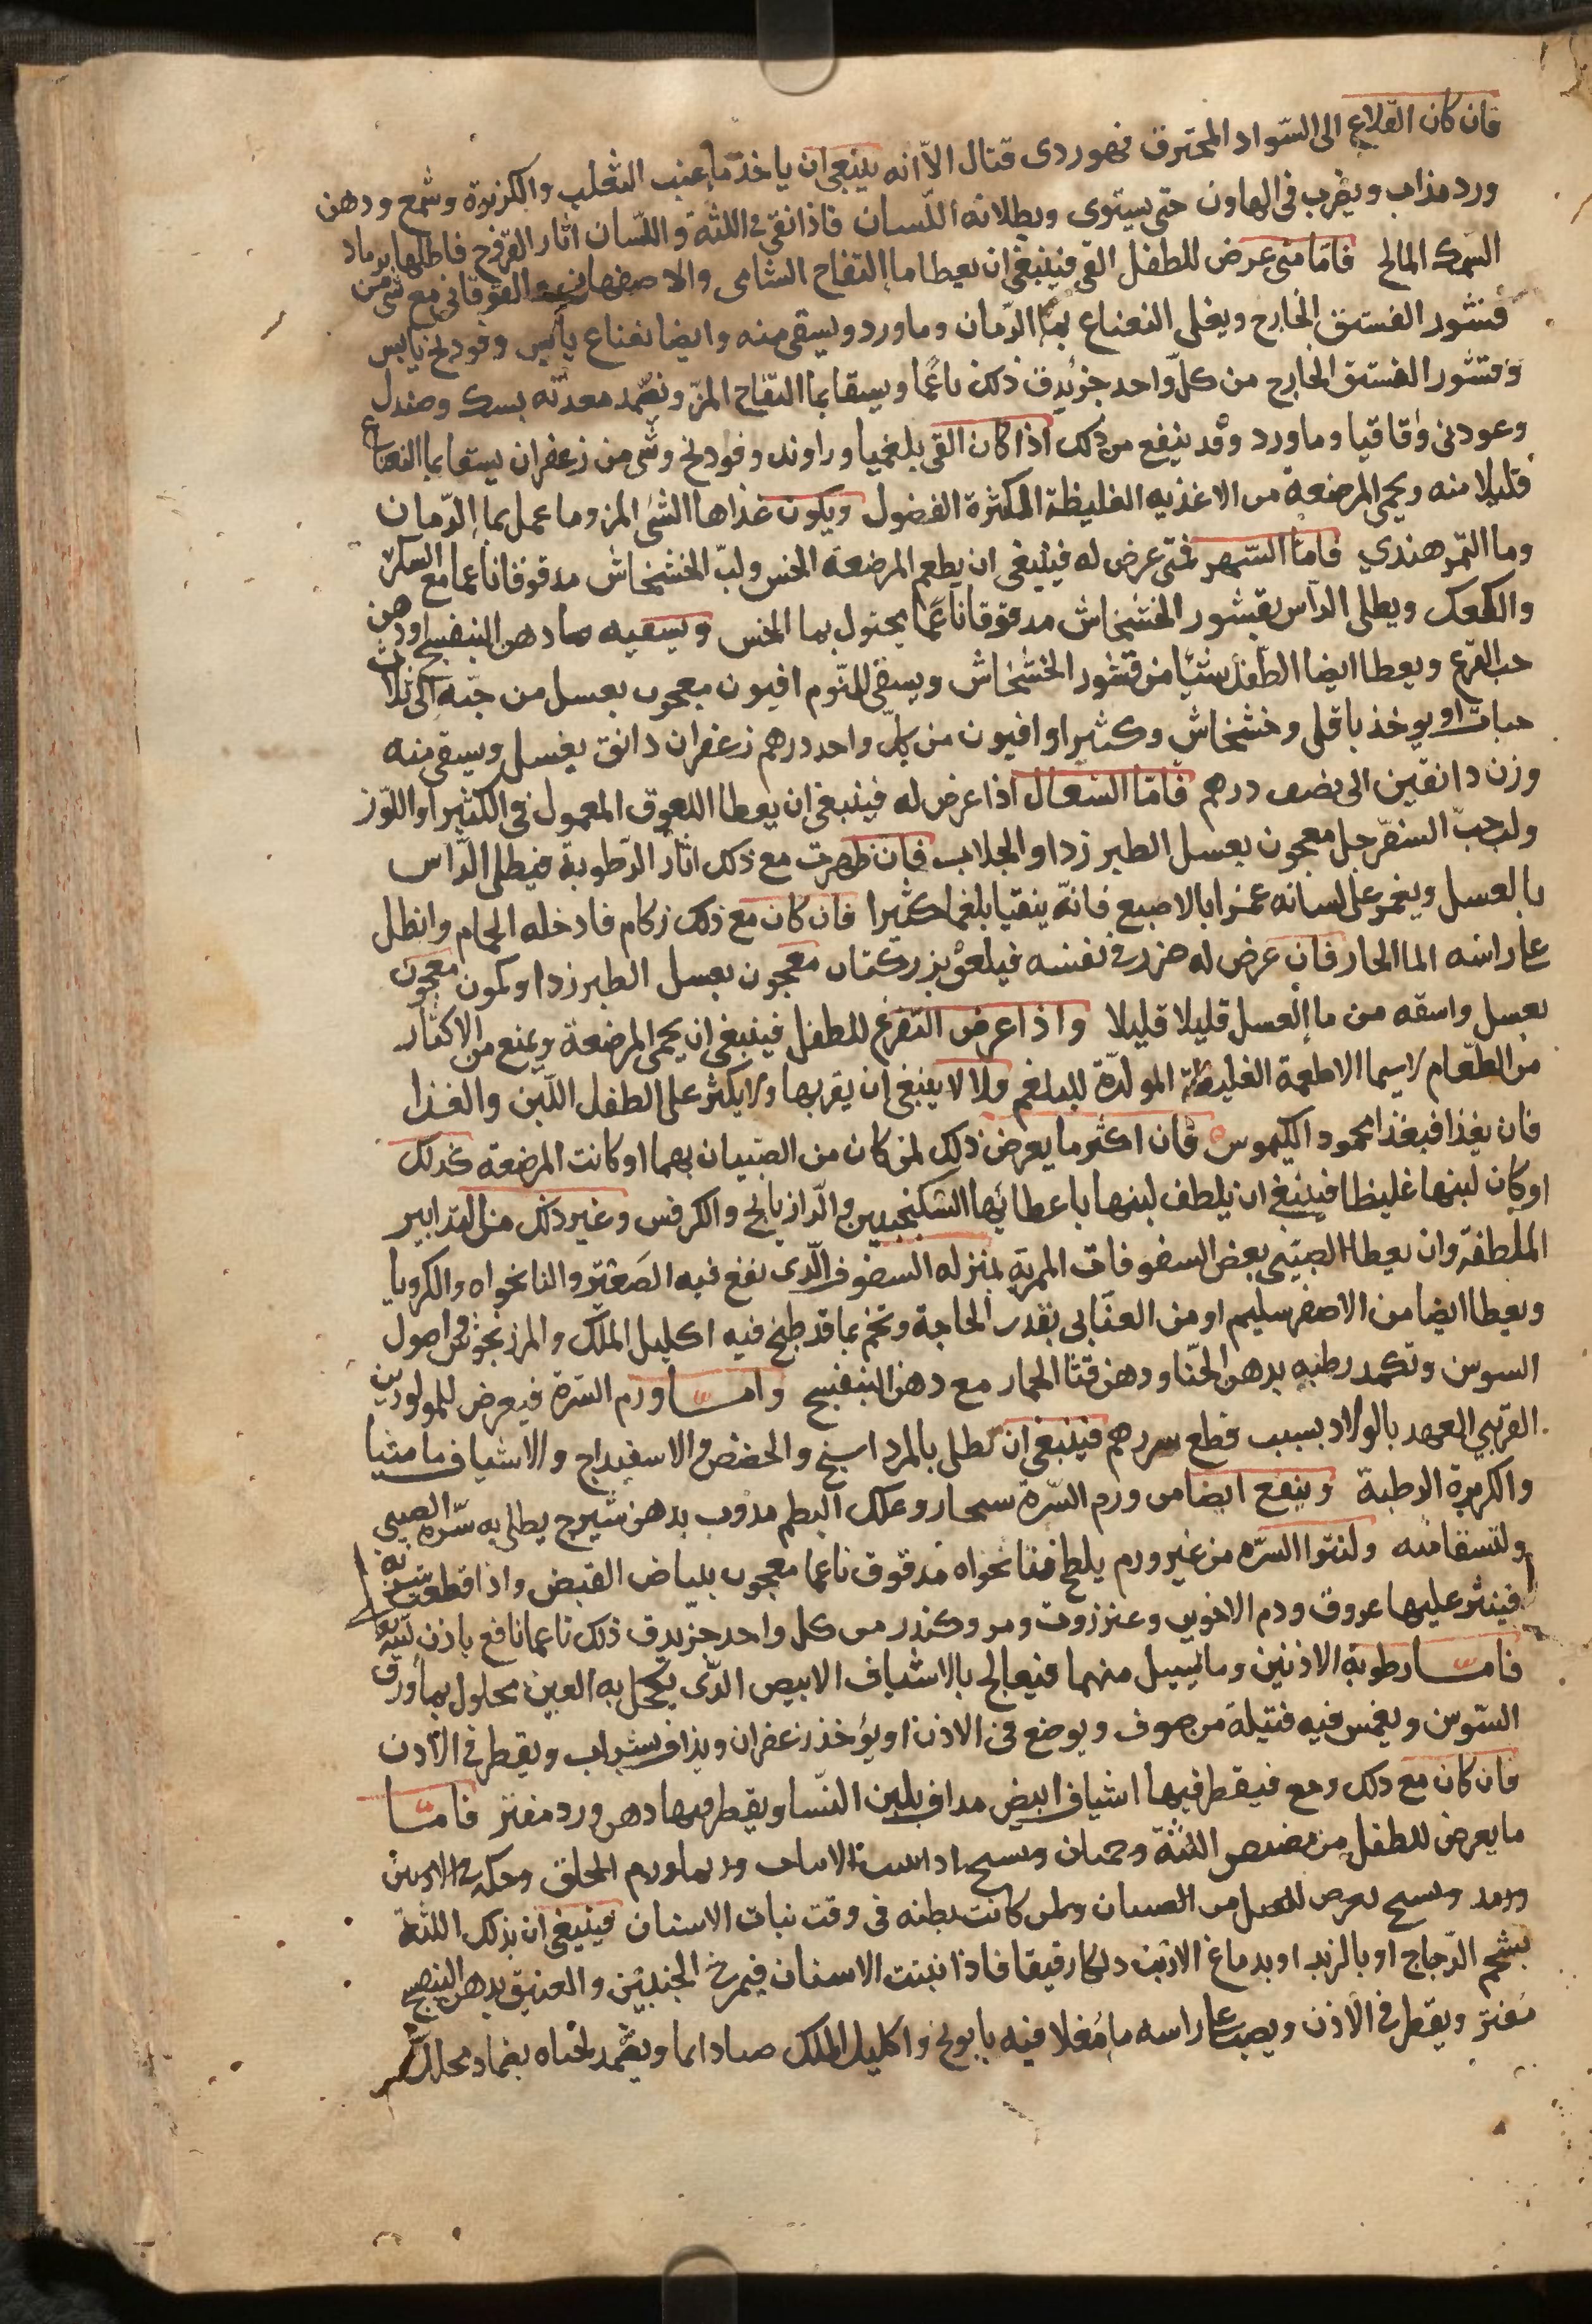 فان كان القلاع الى السواد المحترق فهو ردى قتال الا انه ينبغى ان ياخذ ما عنب الثعلب والكزبرة وشمع ودهن
ورد مذاب ويضرب فى الهاون حتى يستوى ويطلا به اللسان فاذا نقى فى اللثة واللسان اثار القروح فاطلها برماد
السمك المالح فاما متى عرض للطفل القى فينبغى ان يعطا ما التفاح الشامى والاصفهانى الفوقانى مع شى من
قشور الفستق الخارج ويغلى النعناع بما الرمان وماورد ويسقى منه وايضا نعناع يابس وفودنج يابس
وقشور الفستق الخارج من كل واحد جزو يدق ذلك ناعما ويسقا بما التفاح المز ونضمد معدته بسك وصندل
وعود نى واقاقيا وماورد وقد ينفع من ذلك اذا كان القى بلغميا وراوند وفودنج وشى من زعفران يسقا بما النعناع
قليلا منه ويحمى المرضعة من الاغذيه الغليظة المكثرة الفضول ويكون غذاها الشى المز وما عمل بما الرمان
وما التمر هندي فاما السهر فمتى عرض له فينبغى ان يطعم المرضعة الخس ولب الخشخاش مدقوقا ناعما مع السكر
والكعك ويطلى الراس بقشور الخشخاش مدقوقا ناعما يحلول بما الخس ويسقيه ما دهن البنفسج او دهن
حب القرع ويعطا ايضا الطفل شيئا من قشور الخشخاش ويسقى للنوم افيون معجون بعسل من حبة الى ثلاث
حبات او يوخذ باقلى وخشخاش وكثيرا وافيون من كل واحد درهم زعفران دانق بعسل ويسقى منه
وزن دانقين الى نصف درهم فاما السعال اذا عرض له فينبغى ان يعطا اللعوق المعمول فى الكثيرا واللوز
ولب حب السفرجل معجون بعسل الطبرزد او الجلاب فان ظهرت مع ذلك اثار الرطوبة فيطلى الراس
بالعسل ويغمز على لسانه غمزا بالاصبع فانه ينقيا بلغما كثيرا فان كان مع ذلك زكام فادخله الحمام وانطل
على راسه الما الحار فان عرض له ضرر فى نفسه فيلعق بزر كتان معجون بعسل الطبرزد او كمون معجون
بعسل واسقه من ما العسل قليلا قليلا واذا عرض التفزع للطفل فينبغى ان يحمى المرضعة ويمنع من الاكثار
من الطعام لاسيما الاطعمة الغليظة المولدة للبلغم ولا لا ينبغى ان يقربها ولا يكثر على الطفل اللبن والغذا
فان يغذا فبغذا محمود الكيموس فان اكثر ما يعرض ذلك لمن كان من الصبيان بهما او كانت المرضعة كذلك
او كان لبنها غليظا فينبغى ان يلطف لبنها باعطائها السكنجبين والرازيانج والكرفس وغير ذلك من التدابير
الملطفة وان يعطا الصبى بعض السفوفات الممرية بمنزله السفوف الذى نفع فيه الصعتر والنانخواه والكرويا
ويعطا ايضا من الاصفر سليم او من العنابى بقدر الحاجة وتخم بما قد طبخ فيه اكليل الملك والمرزنجوش واصول
السوس وتكمد رطبه بدهن الحنا ودهن قثا الحمار مع دهن البنفسج واما ورم السرة فيعرض للمولودين
القريبى العهد بالولاد بسبب قطع سررهم فينبغى ان تطلى بالمرداسنج والحضض والاسفيداج والاشياف ماميثا
والكزبرة الرطبة وينفع ايضا من ورم السرة سحار وعلك البطم مذوب بدهن شيرج يطلى به سرة الصبى
ولتسقا منه ولنتوا السره من غير ورم يلطخ فنانخواه مدقوق ناعما معجون ببياض البيض واذا قطعت سرته
فينثر عليها عروق ودم الاخوين وعنزروت ومر وكندر من كل واحد جز يدق ذلك ناعما نافع باذن الله تعا
فاما رطوبة الاذنين وما يسيل منهما فيعالج بالاشياف الابيض الذى يكحل به العين محلول بما ورق
السوس ويغمس فيه فتيلة من صوف ويوضع فى الاذن او يؤخذ زعفران ويذاف بشراب ويقطر فى الاذن
فان كان مع ذلك وجع فيقطر فيها اشياف ابيض مداف بلبن النسا ويقطر فيها دهن ورد مفتر فاما
ما يعرض للطفل من مضض اللثة وحميان وتشنج اذا نبت الاسنان وربما ورم الحلق وحكه فى الاذنين
ورمد وتشنج يعرض للعبل من الصبيان ولمن كانت بطنه فى وقت نبات الاسنان فينبغى ان يذلك اللثة
بشحم الدجاج او بالزبد او بدماغ الارنب دلكا رفيقا فاذا نبتت الاسنان فيمرخ الجنبين والعنق بدهن البنفسج
مفتر ويقطر فى الاذن ويصب على راسه ما مغلا فيه بابونج واكليل الملك صبا دايما ويضمد لحناه بضماد محلل